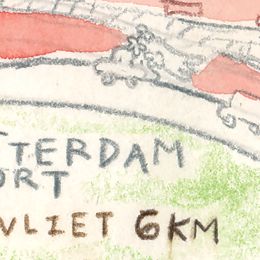 TTERDAM
ORT
VLIET 6KM